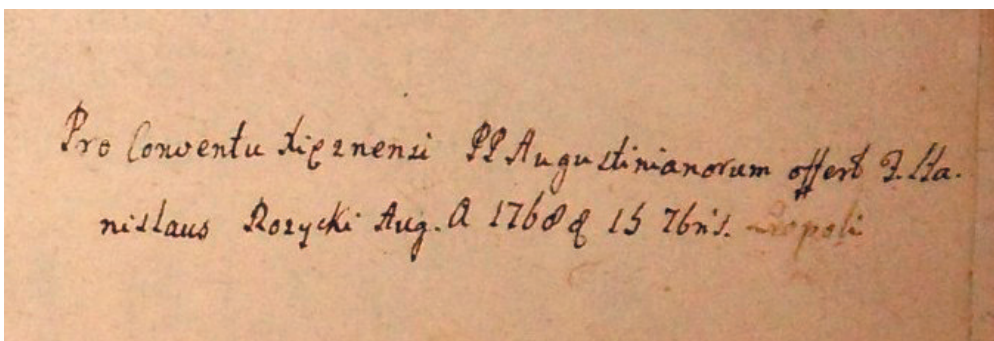 Pro Conventu Xięznensi PP Augustinianorum offert F. Sta.
nislaus Rozycki Aug. A 1768 d 15 7bris. Leopoli